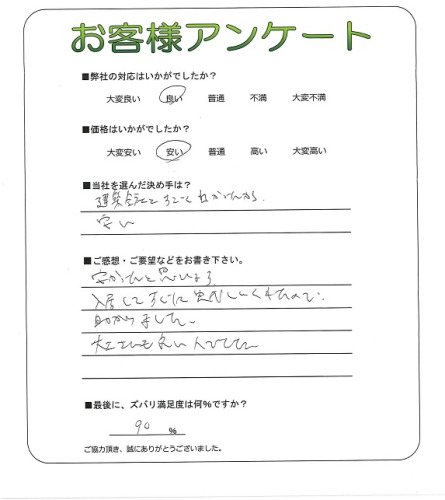 お客様アンケート
■弊社の対応はいかがでしたか？
大変良い 良い 普通 不満 大変不満
■価格はいかがでしたか？
大変安い 安い 普通 高い 大変高い
■当社を選んだ決め手は？
安い
■ご感想・ご要望などをお書き下さい。
安かったと思います
入居してすぐに
助かりました。
大工さんも良い人でした
■最後に、ズバリ満足度は何％ですか？
90 ％
ご協力頂き、誠にありがとうございました。